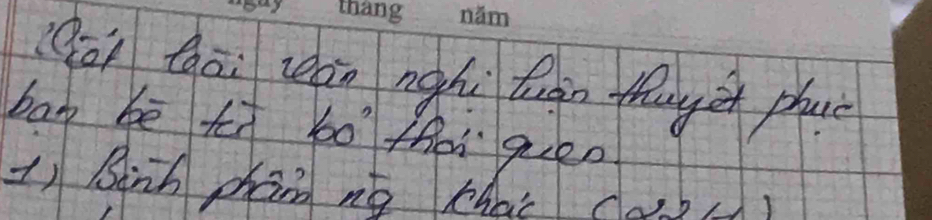 ngày tháng năm
Viết bài văn nghị luận thuyết phục
bạn bè từ bỏ thói quen
1) Bình phẩm ng khác (